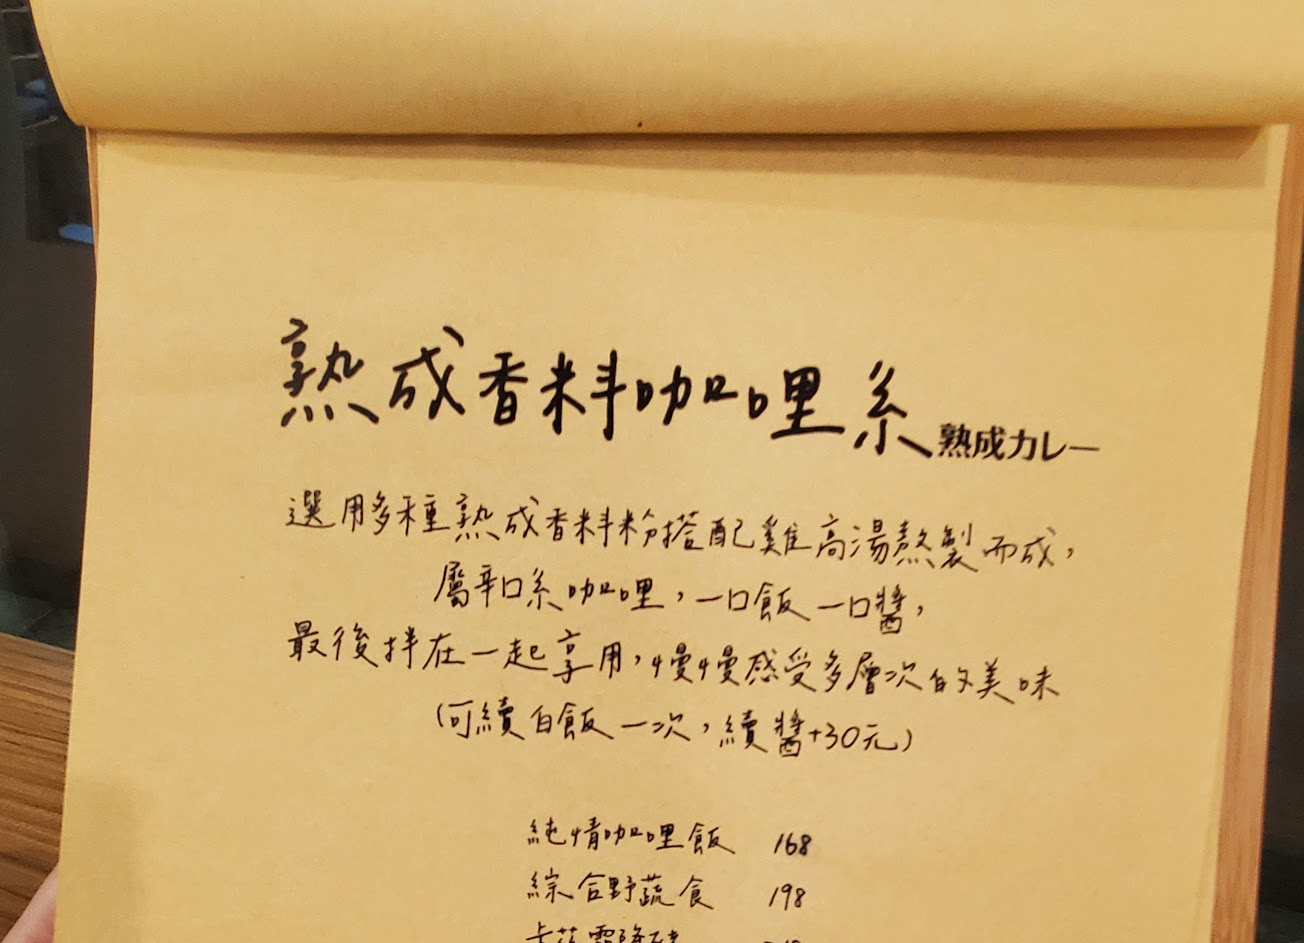 熟成香料咖哩系 熟成カレー
選用多種熟成香料粉搭配雞高湯熬製而成，
屬辛口系咖哩，一口飯一口醬，
最後拌在一起享用，慢慢感受多層次的美味
(可續白飯一次，續醬+30元)
純情咖哩飯 168
綜合野蔬食 198